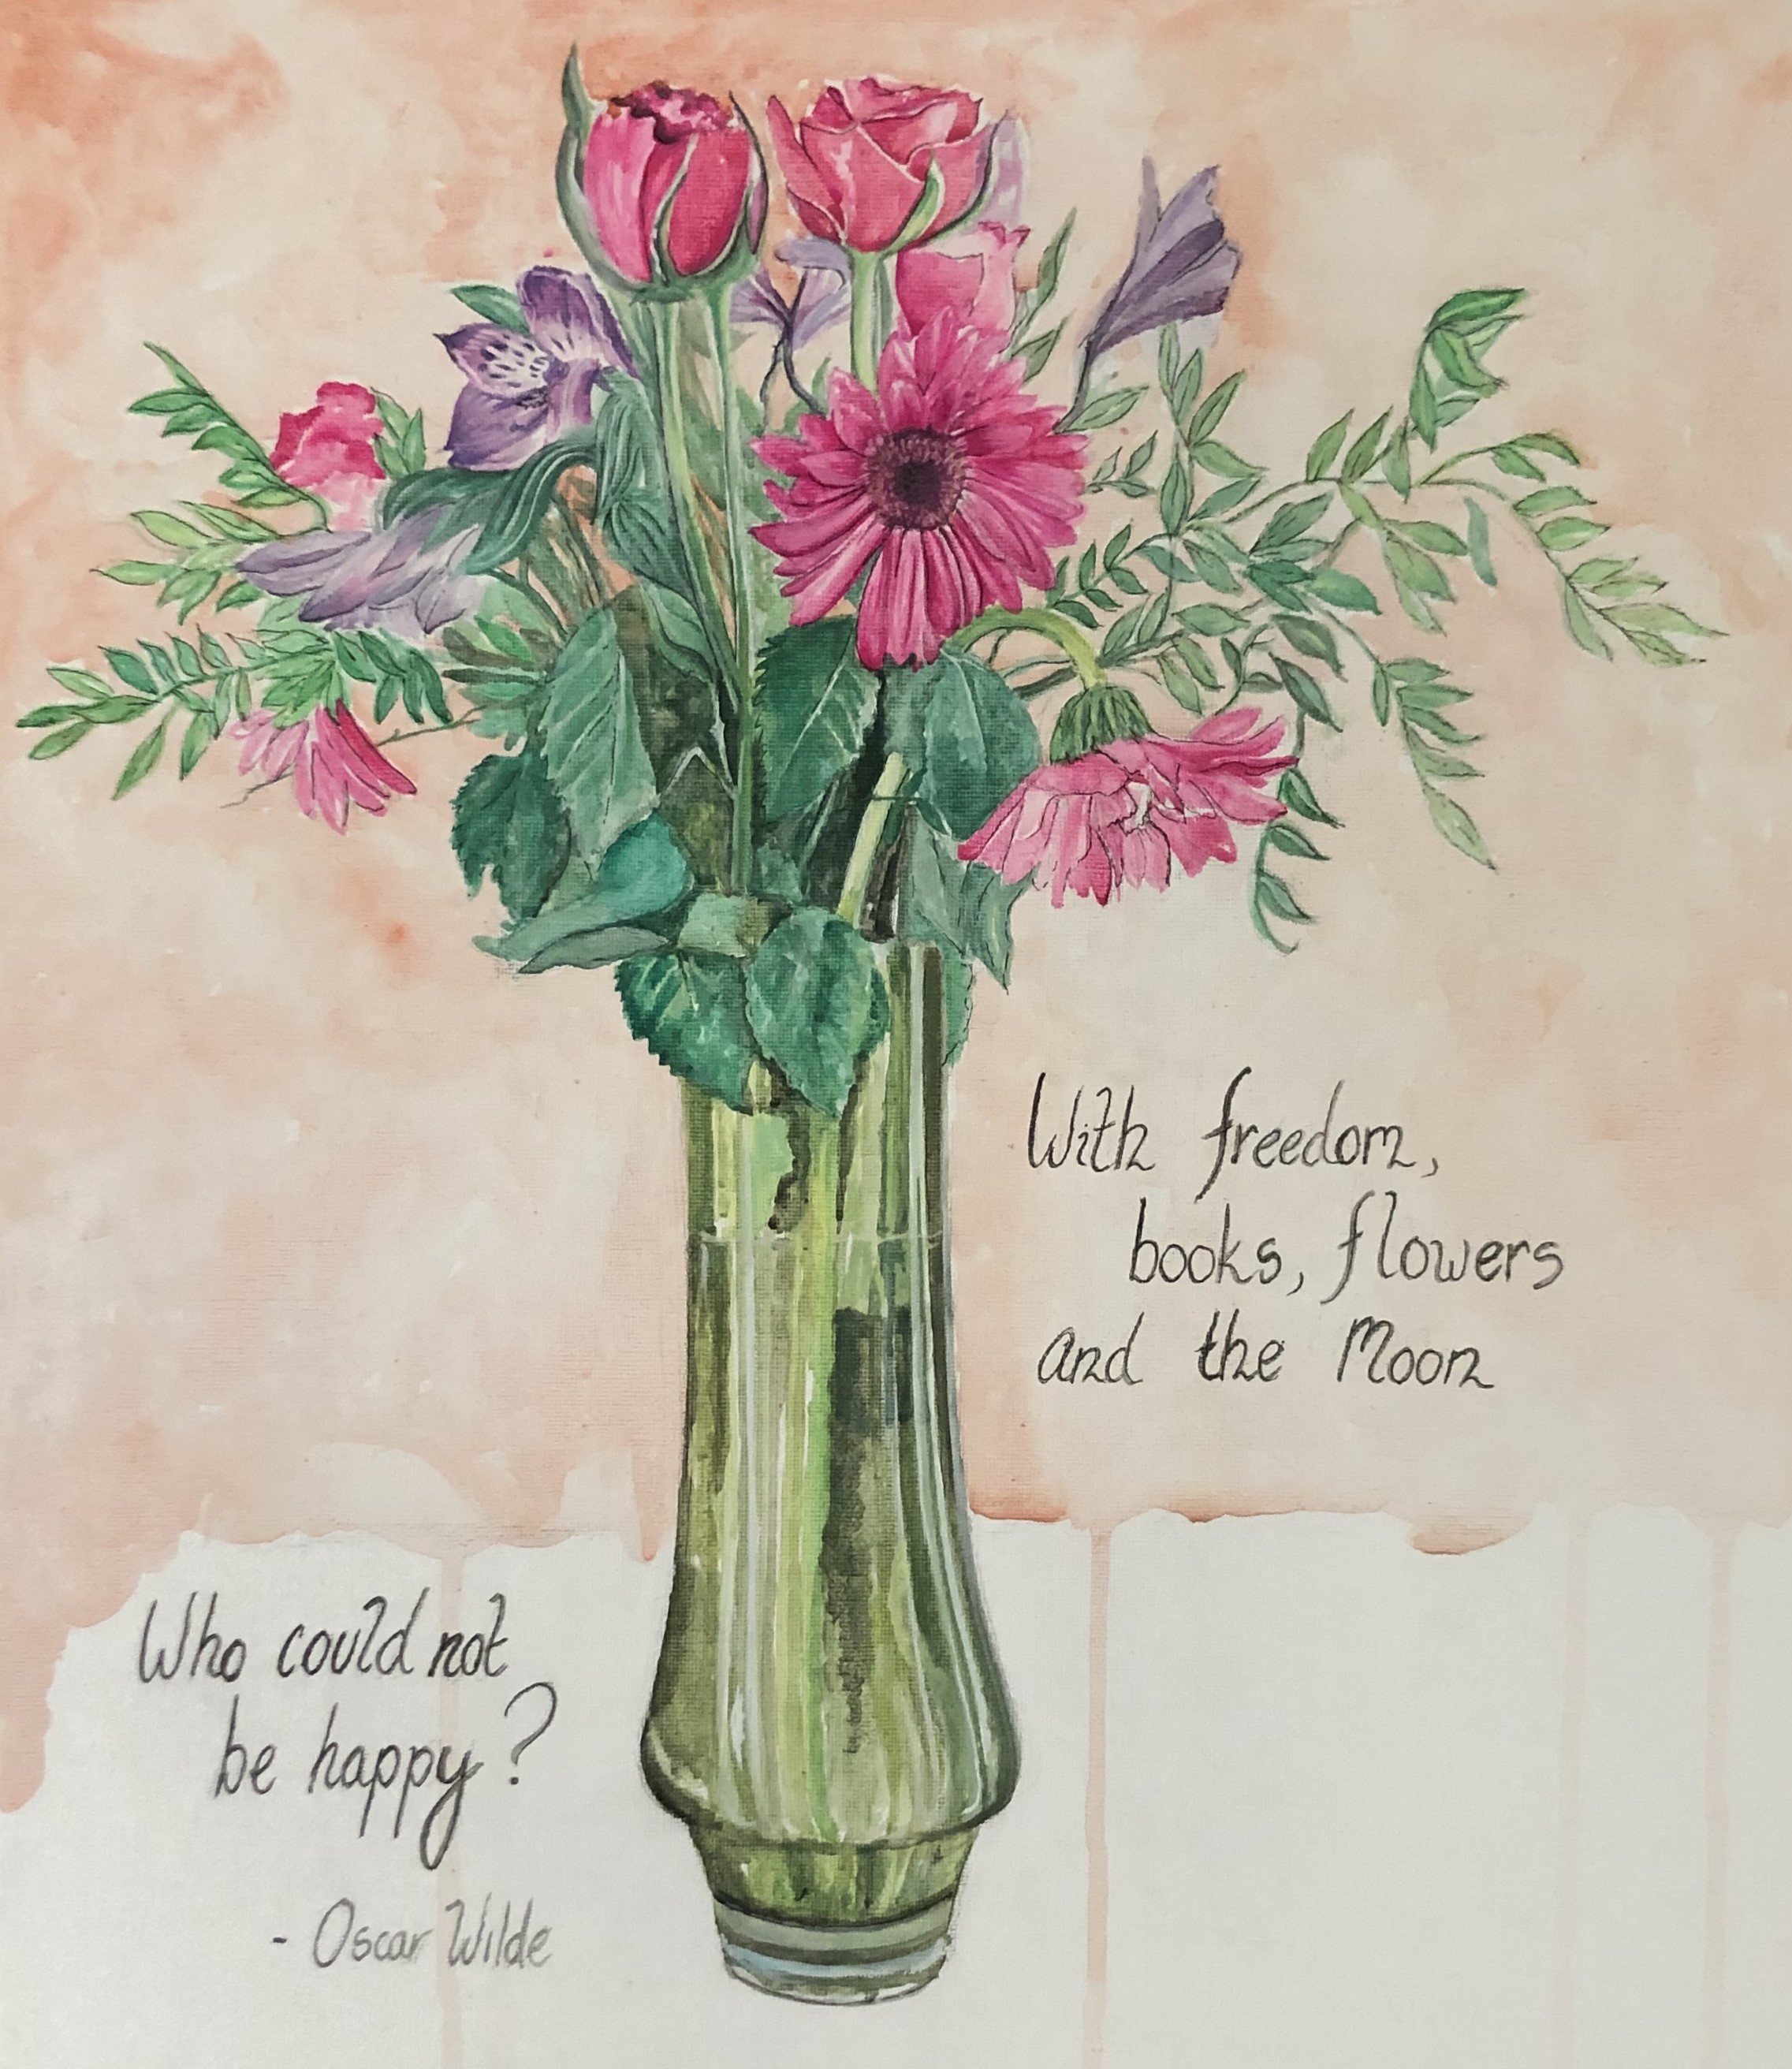 With freedom,
books, flowers
and the Moon
Who could not
be happy?
- Oscar Wilde